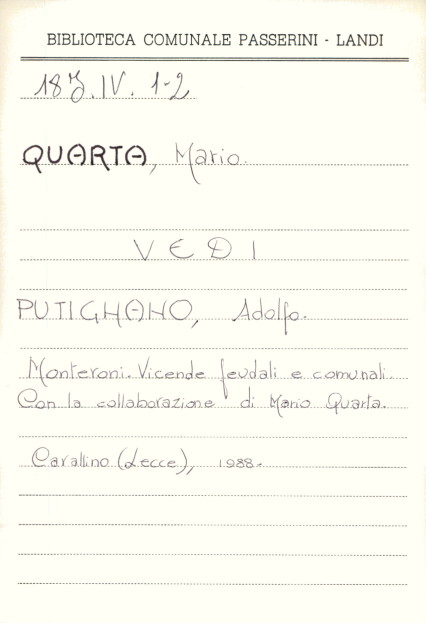 BIBLIOTECA COMUNALE PASSERINI - LANDI
18Z.IV. 1-2
QUARTA, Mario.
VEDI
PUTIGNANO, Adolfo.
Monteroni. Vicende feudali e comunali.
Con la collaborazione di Mario Quarta.
Cavallino (Lecce), 1988.